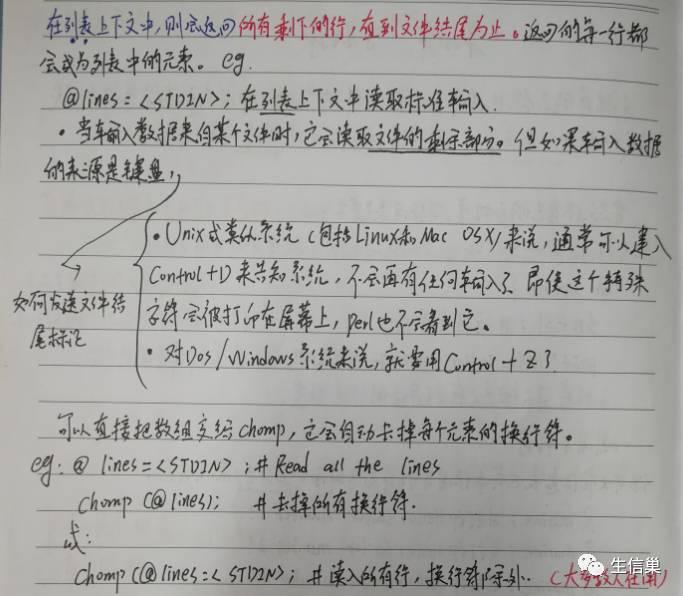 在列表上下文中,则会返回所有剩下的行,直到文件结尾为止。返回的每一行都
会成为列表中的元素。eg.
@lines = <STDIN>; 在列表上下文中读取标准输入.
· 当输入数据来自某个文件时,它会读取文件的剩余部分。但如果输入数据
的来源是键盘,
· Unix或类似系统(包括Linux和Mac OSX)来说,通常可以键入
Control+D来告知系统,不会再有任何输入了 即使这个特殊
字符会被打印在屏幕上,perl也不会看到它。
· 对Dos/Windows系统来说,就要用Control+Z了
如何发送文件结
尾标记
可以直接把数组交给chomp,它会自动去掉每个元素的换行符。
eg: @lines = <STDIN>; # Read all the lines
chomp (@lines); # 去掉所有换行符.
或:
chomp (@lines = <STDIN>; # 读入所有行,换行符除外. (大多数人在用)
生信巢